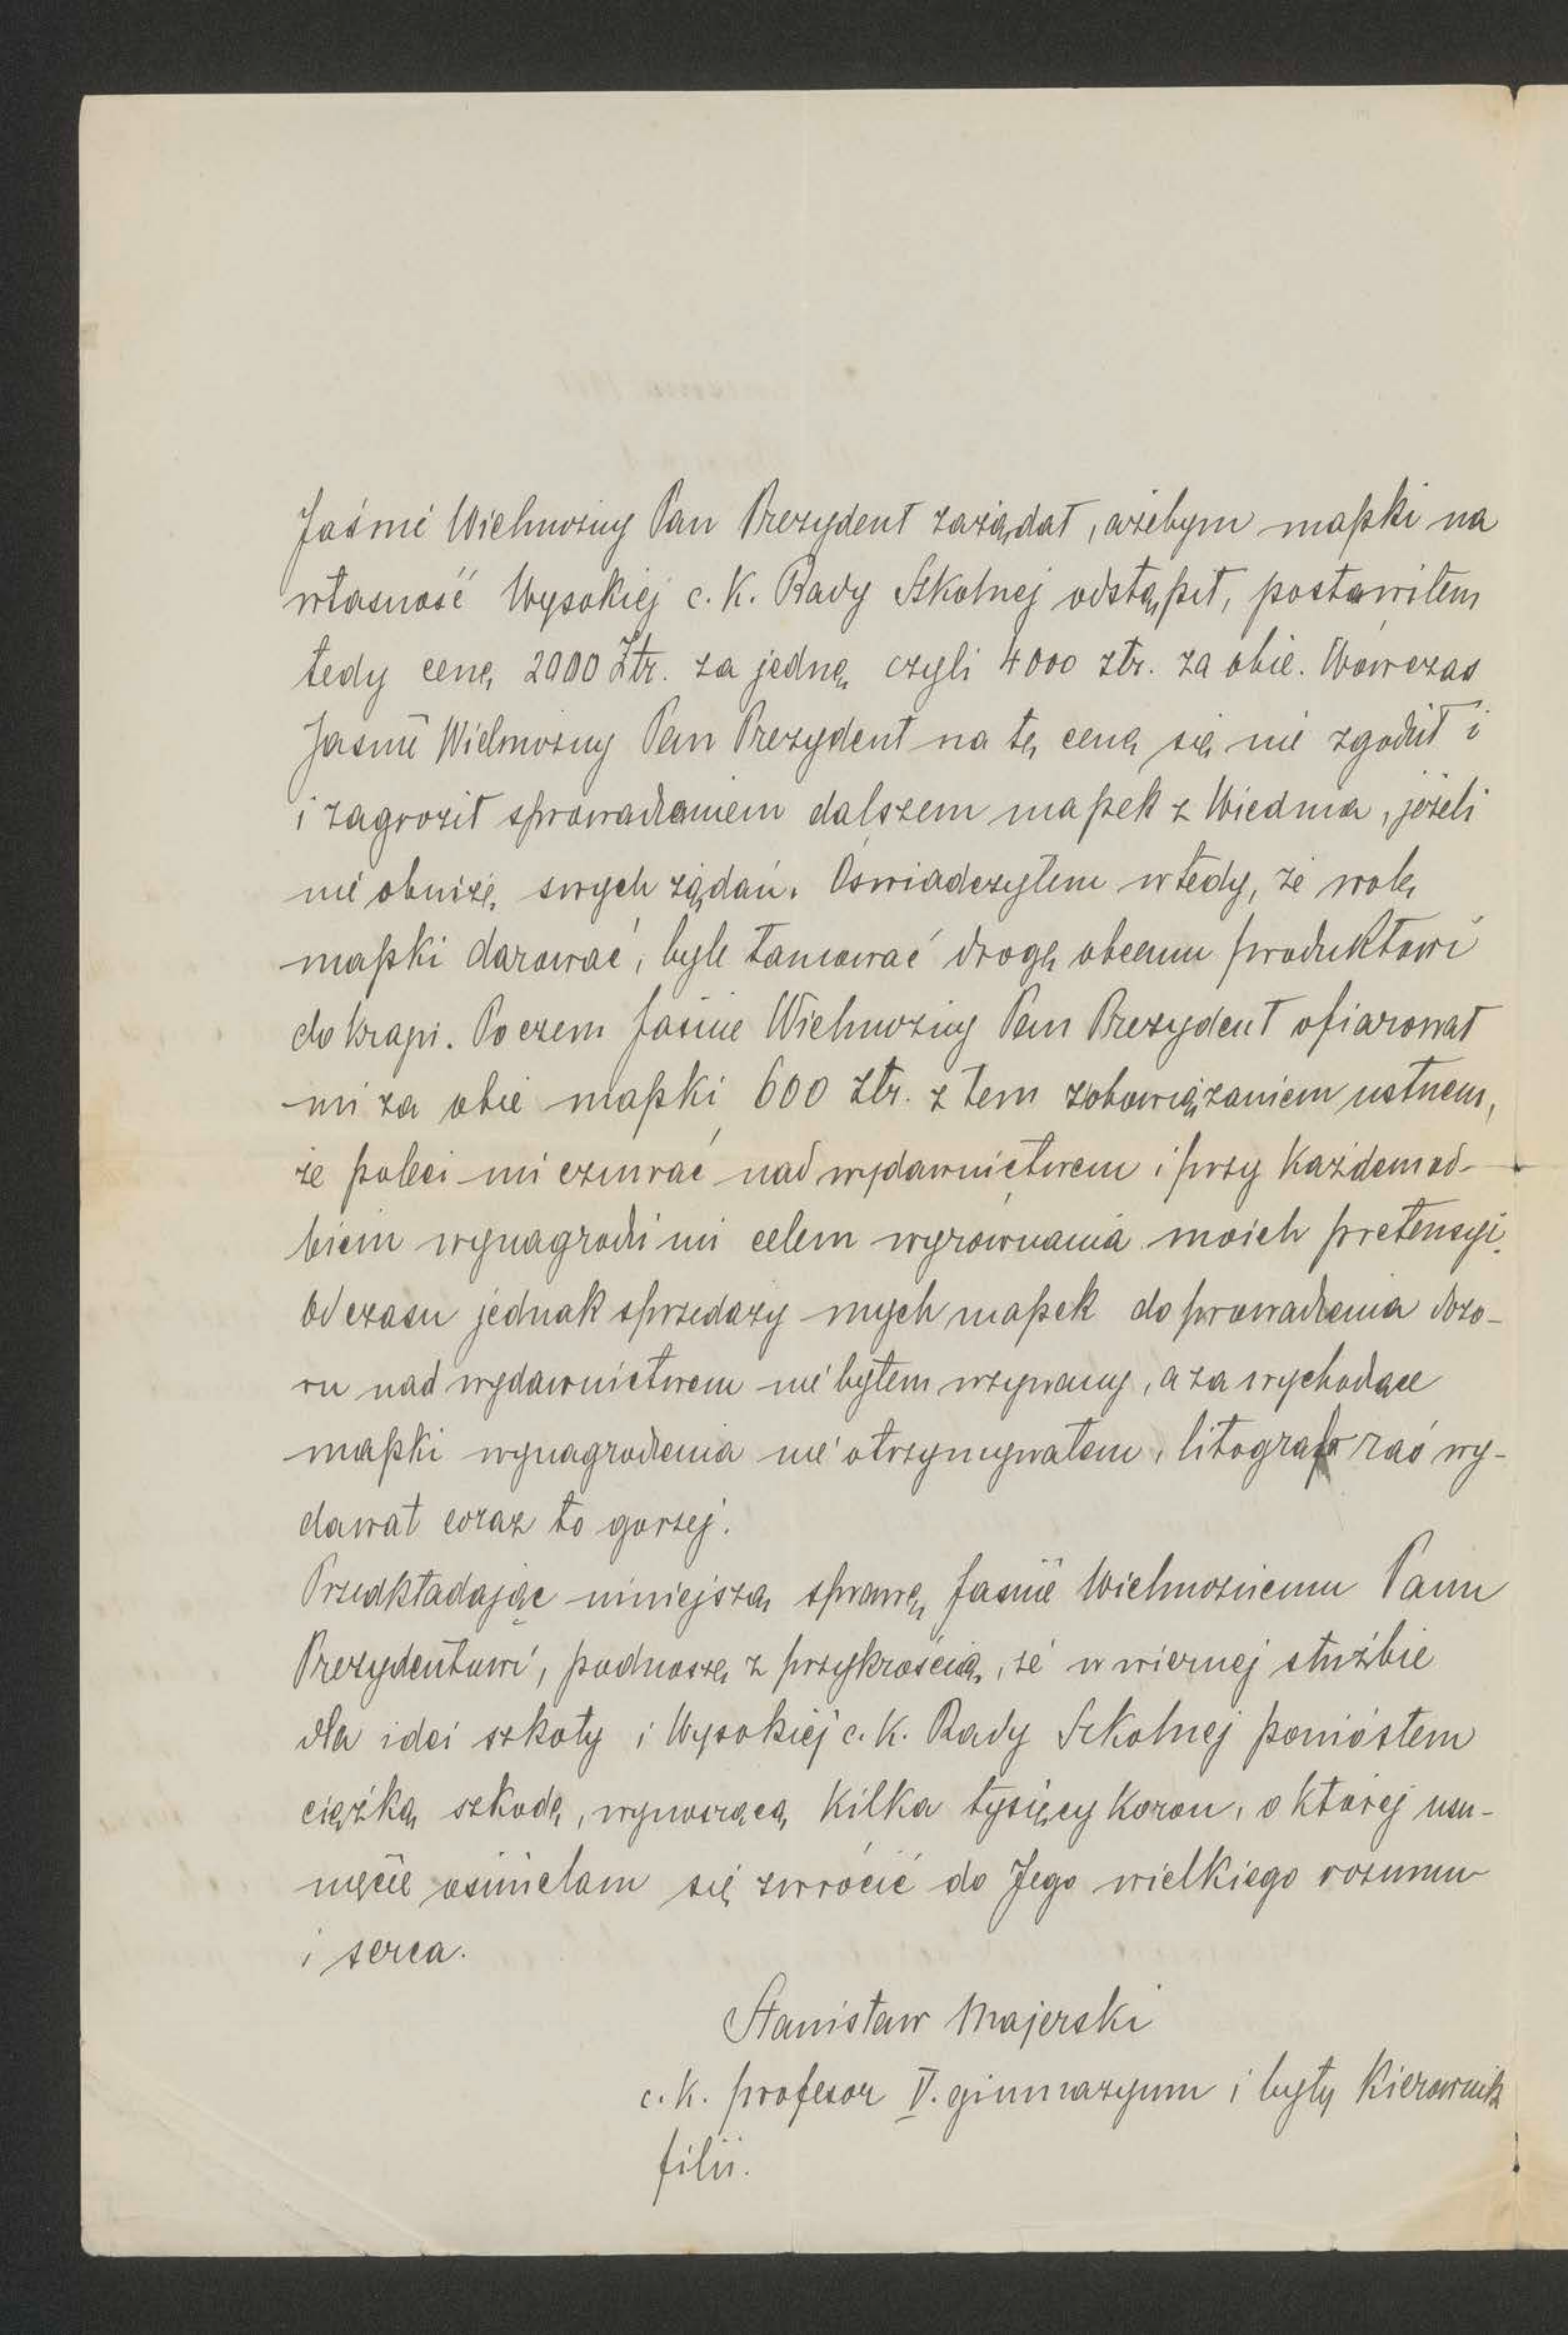 Jaśnie Wielmożny Pan Prezydent zażądał, ażebym mapki na
własność Wysokiej c. k. Rady Szkolnej odstąpił, postawiłem
tedy cenę 2000 Złr. za jednę czyli 4000 złr. za obie. Wówczas
Jaśnie Wielmożny Pan Prezydent na tę cenę się nie zgodził i
i zagroził sprowadzeniem dalszem mapek z Wiednia, jeżeli
nie obniżę swych żądań. Oświadczyłem wtedy, że wolę
mapki darować, byle tamować drogę obcemu produktowi
do kraju. Po czem Jaśnie Wielmożny Pan Prezydent ofiarował
mi za obie mapki 600 złr. z tem zobowiązaniem ustnem,
że poleci mi czuwać nad wydawnictwem i przy każdem od-
biciu wynagrodzi mi celem wyrównania moich pretensyi.
Od czasu jednak sprzedaży mych mapek do prowadzenia dozo-
ru nad wydawnictwem nie byłem wzywany, a za wychodzące
mapki wynagrodzenia nie otrzymywałem, litograf zaś wy-
dawał coraz to gorzej.
Przedkładając niniejszą sprawę Jaśnie Wielmożnemu Panu
Prezydentowi, podnoszę z przykrością, że w wiernej służbie
dla idei szkoły i Wysokiej c. k. Rady Szkolnej poniosłem
ciężką szkodę, wynoszącą kilka tysięcy koron, o której usu-
nięcie ośmielam się zwrócić do Jego wielkiego rozumu
i serca.
Stanisław Majerski
c. k. profesor V. gimnazyum i były kierownik
filii.